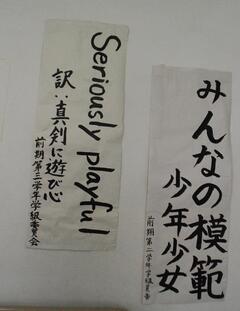 Seriously playful
訳:真剣に遊び心
前期第三学年学級委員会
みんなの模範
少年少女
前期第二学年学級委員会